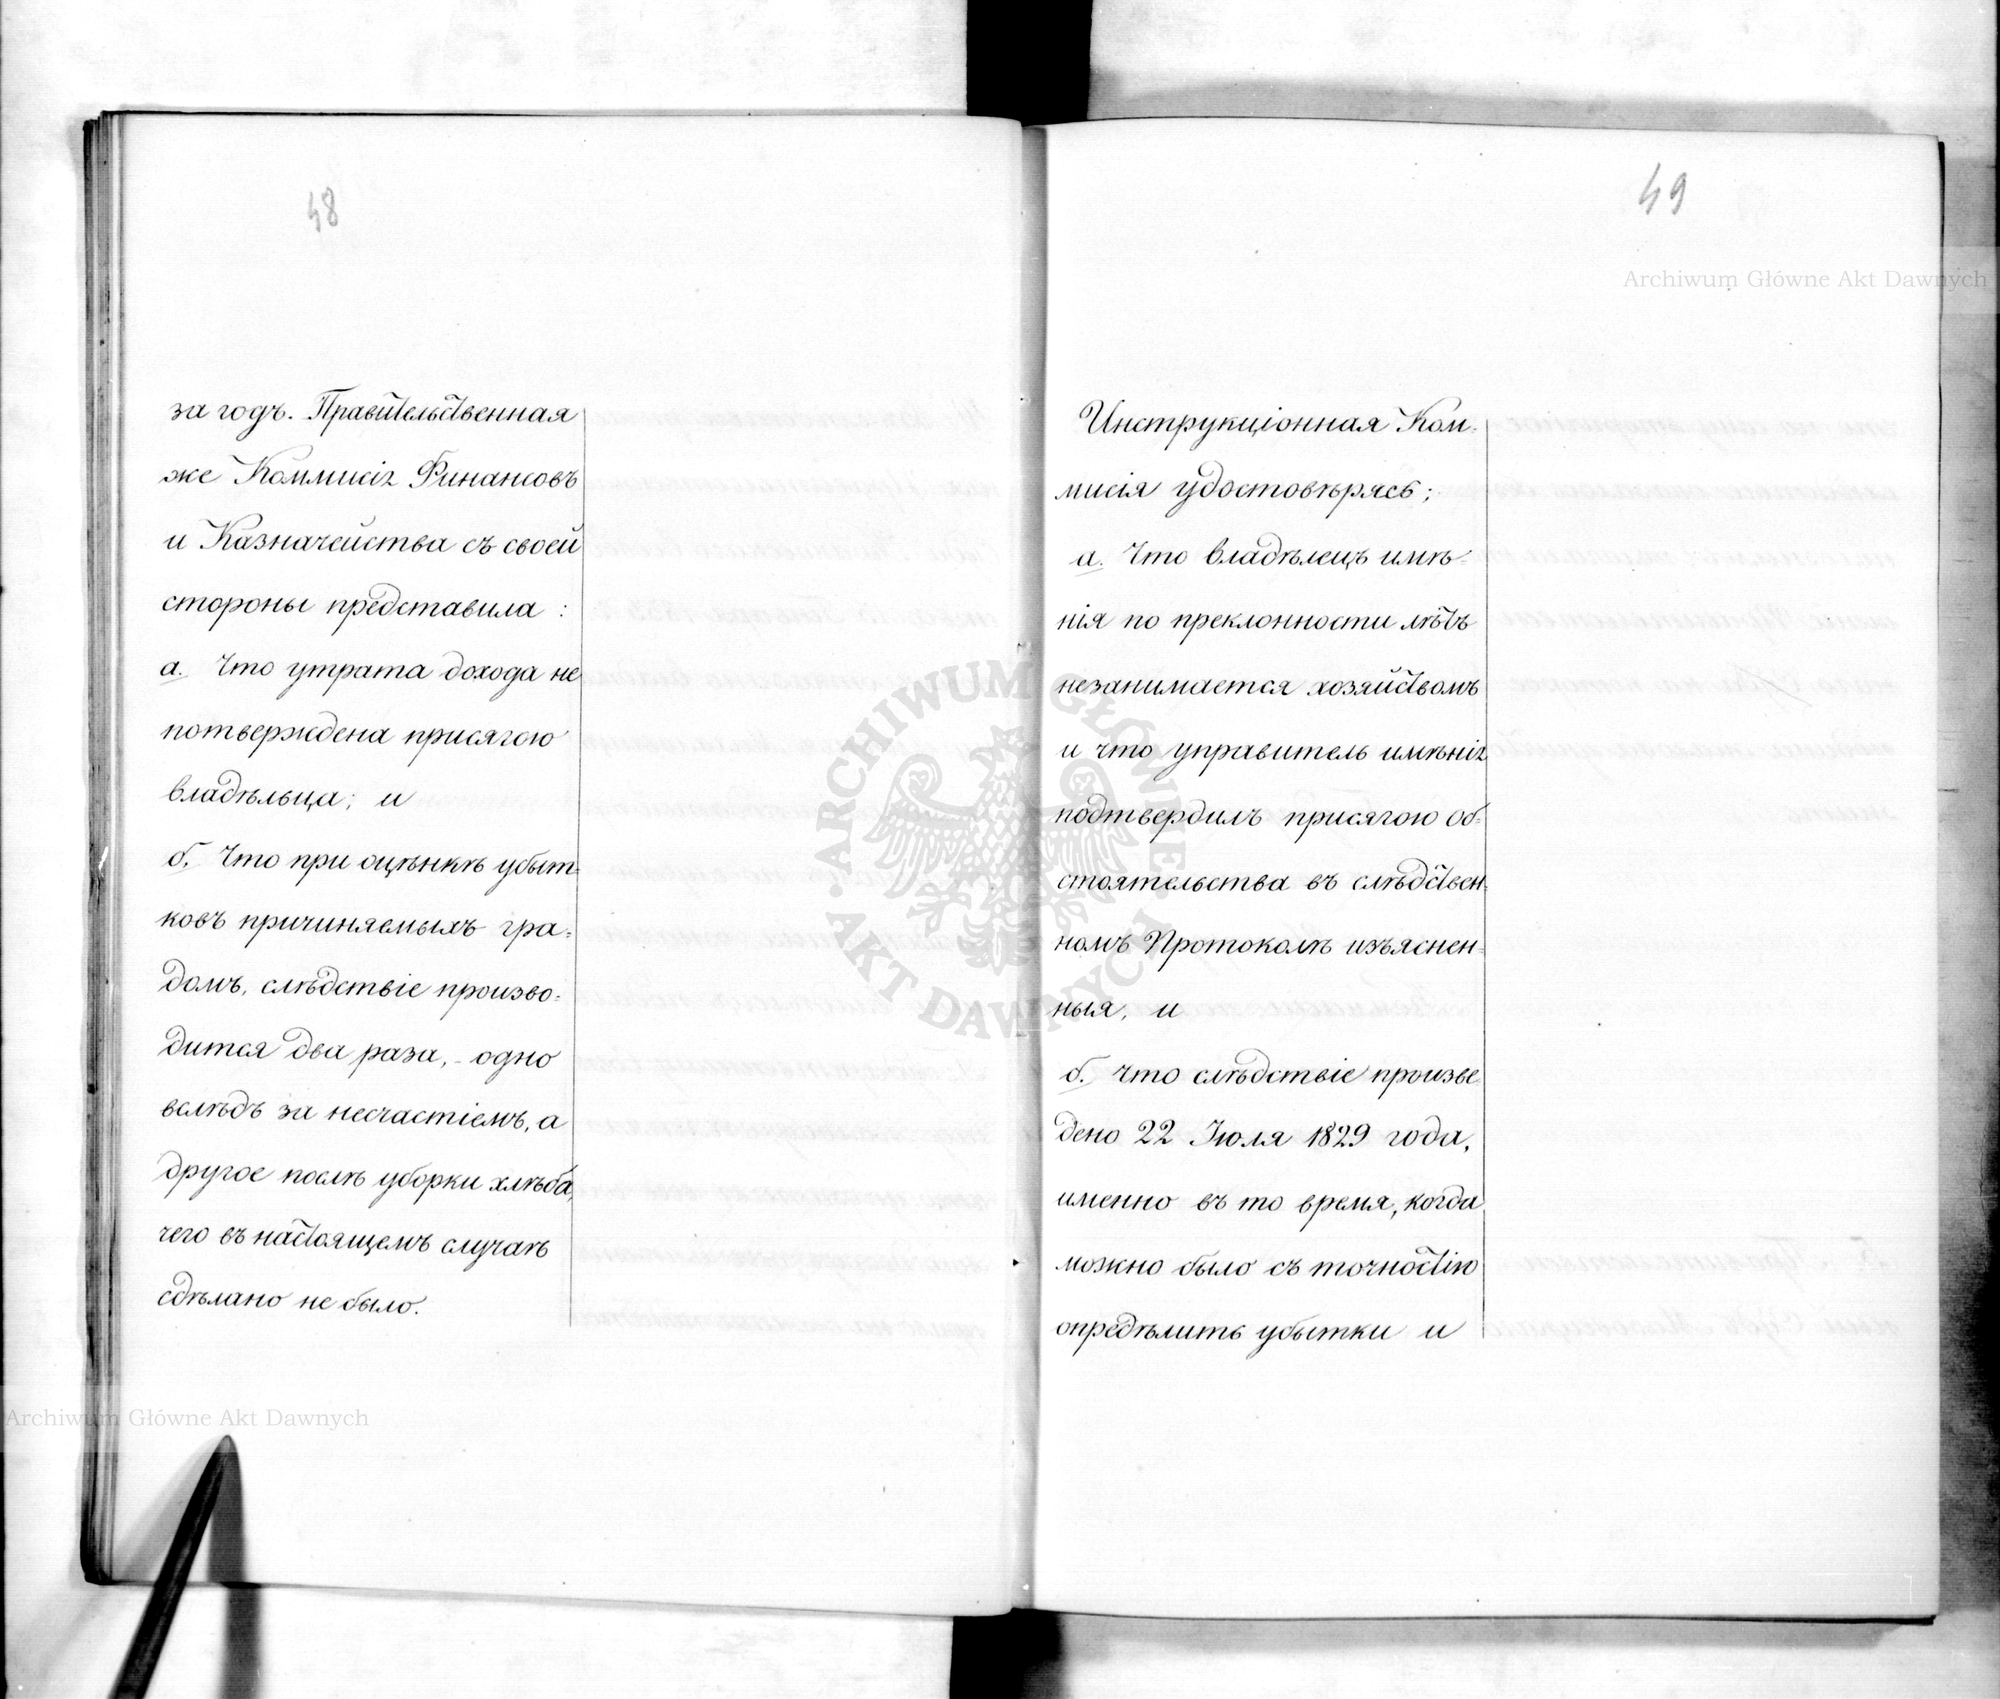 48
за годъ. Правительственная
же Коммисія Финансовъ
и Казначейства съ своей
стороны представила :
а. Что утрата дохода не
потверждена присягою
владѣльца; и
б. Что при оцѣнкѣ убыт=
ковъ причиняемыхъ гра=
домъ, слѣдствіе произво=
дится два раза, - одно
вслѣдъ за несчастіемъ, а
другое послѣ уборки хлѣба,
чего въ настоящемъ случаѣ
сдѣлано не было.
49
Инструкціонная Ком=
мисія удостовѣрясь;
а. Что владѣлецъ имѣ=
нія по преклонности лѣтъ
незанимается хозяйствомъ
и что управитель имѣнія
подтвердилъ присягою об=
стоятельства въ слѣдствен=
номъ Протоколѣ изъяснен=
ныя, и
б. что слѣдствіе произве=
дено 22 Іюля 1829 года,
именно въ то время, когда
можно было съ точностію
опредѣлить убытки и
Archiwum Główne Akt Dawnych
ARCHIWUM GŁÓWNE AKT DAWNYCH
Archiwum Główne Akt Dawnych